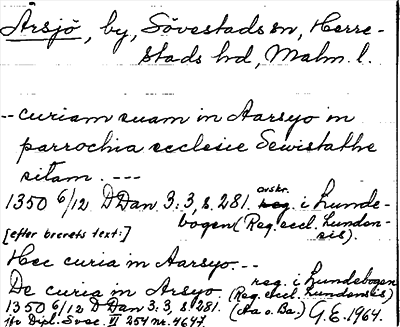 Årsjö, by, Sövestads sn, Herre-
stads hd, Malm. l.
-- curiam suam in Aarsyo in
parrochia ecclesie Sewistathe
sitam. ---
1350 6/12 DDan 3:3, s. 281. avskr. i Lunde-
bogen (Reg. eccl. Lunden-
sis).
[efter brevets text:]
Hec curia in Aarsyo.--
De curia in Arsyo. reg. i Lundebogen
(Reg. eccl. Lundensis)
1350 6/12 DDan 3:3, s. 281. (Aa o. Ba.) G.E. 1964.
jfr Dipl. Svec. VI 254 nr. 4647.